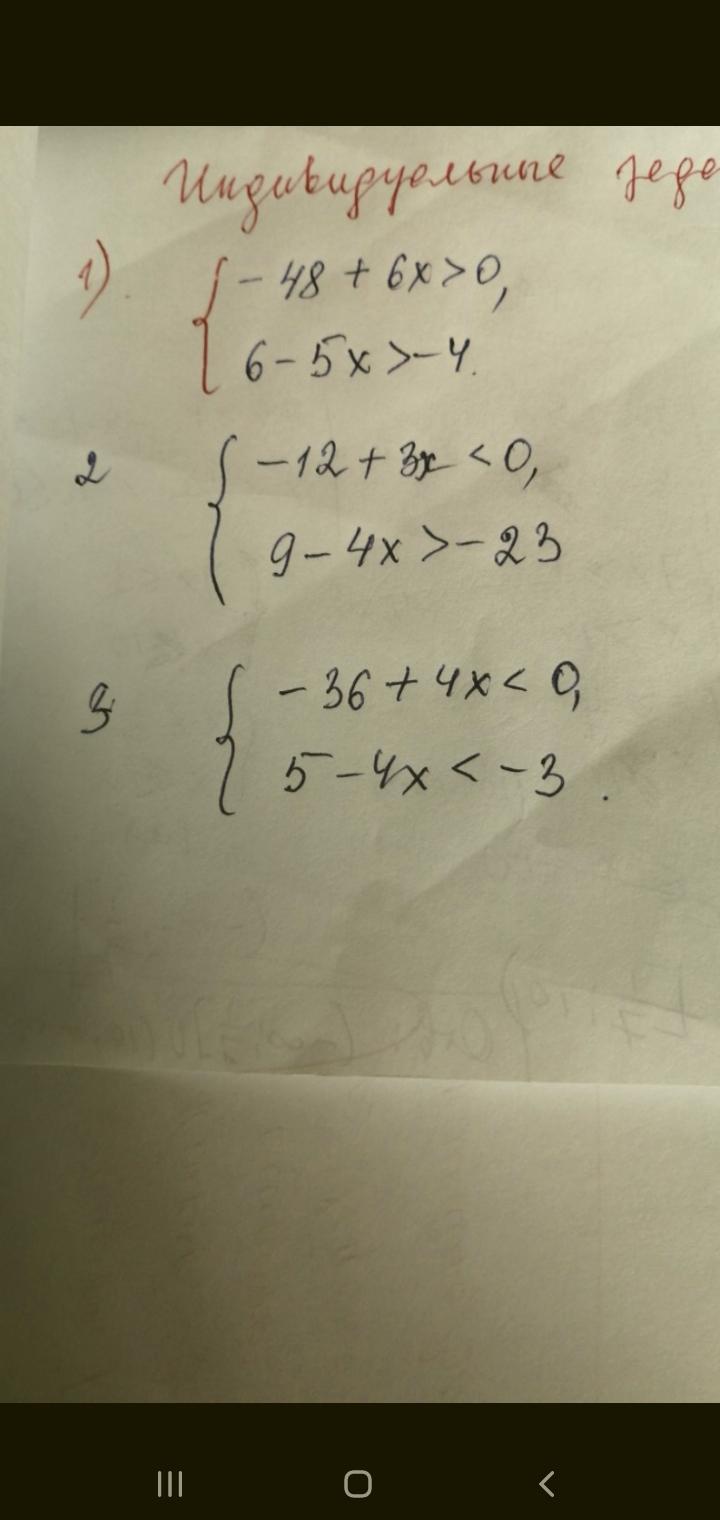 Индивидуельные
1). { -48 + 6x > 0,
6 - 5x > -4.
2 { -12 + 3x < 0,
9 - 4x > -23
3 { -36 + 4x < 0,
5 - 4x < -3 .